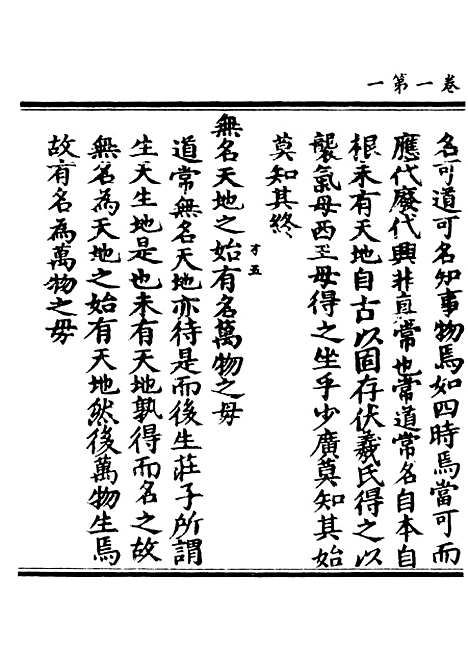 卷一第一
名可道可名知事物焉如四時焉當可而
應代廢代興非真常也常道常名自本自
根未有天地自古以固存伏羲氏得之以
襲氣母西王母得之坐乎少廣莫知其始
莫知其終
才五
無名天地之始有名萬物之母
道常無名天地亦待是而後生莊子所謂
生天生地是也未有天地孰得而名之故
無名為天地之始有天地然後萬物生焉
故有名為萬物之母